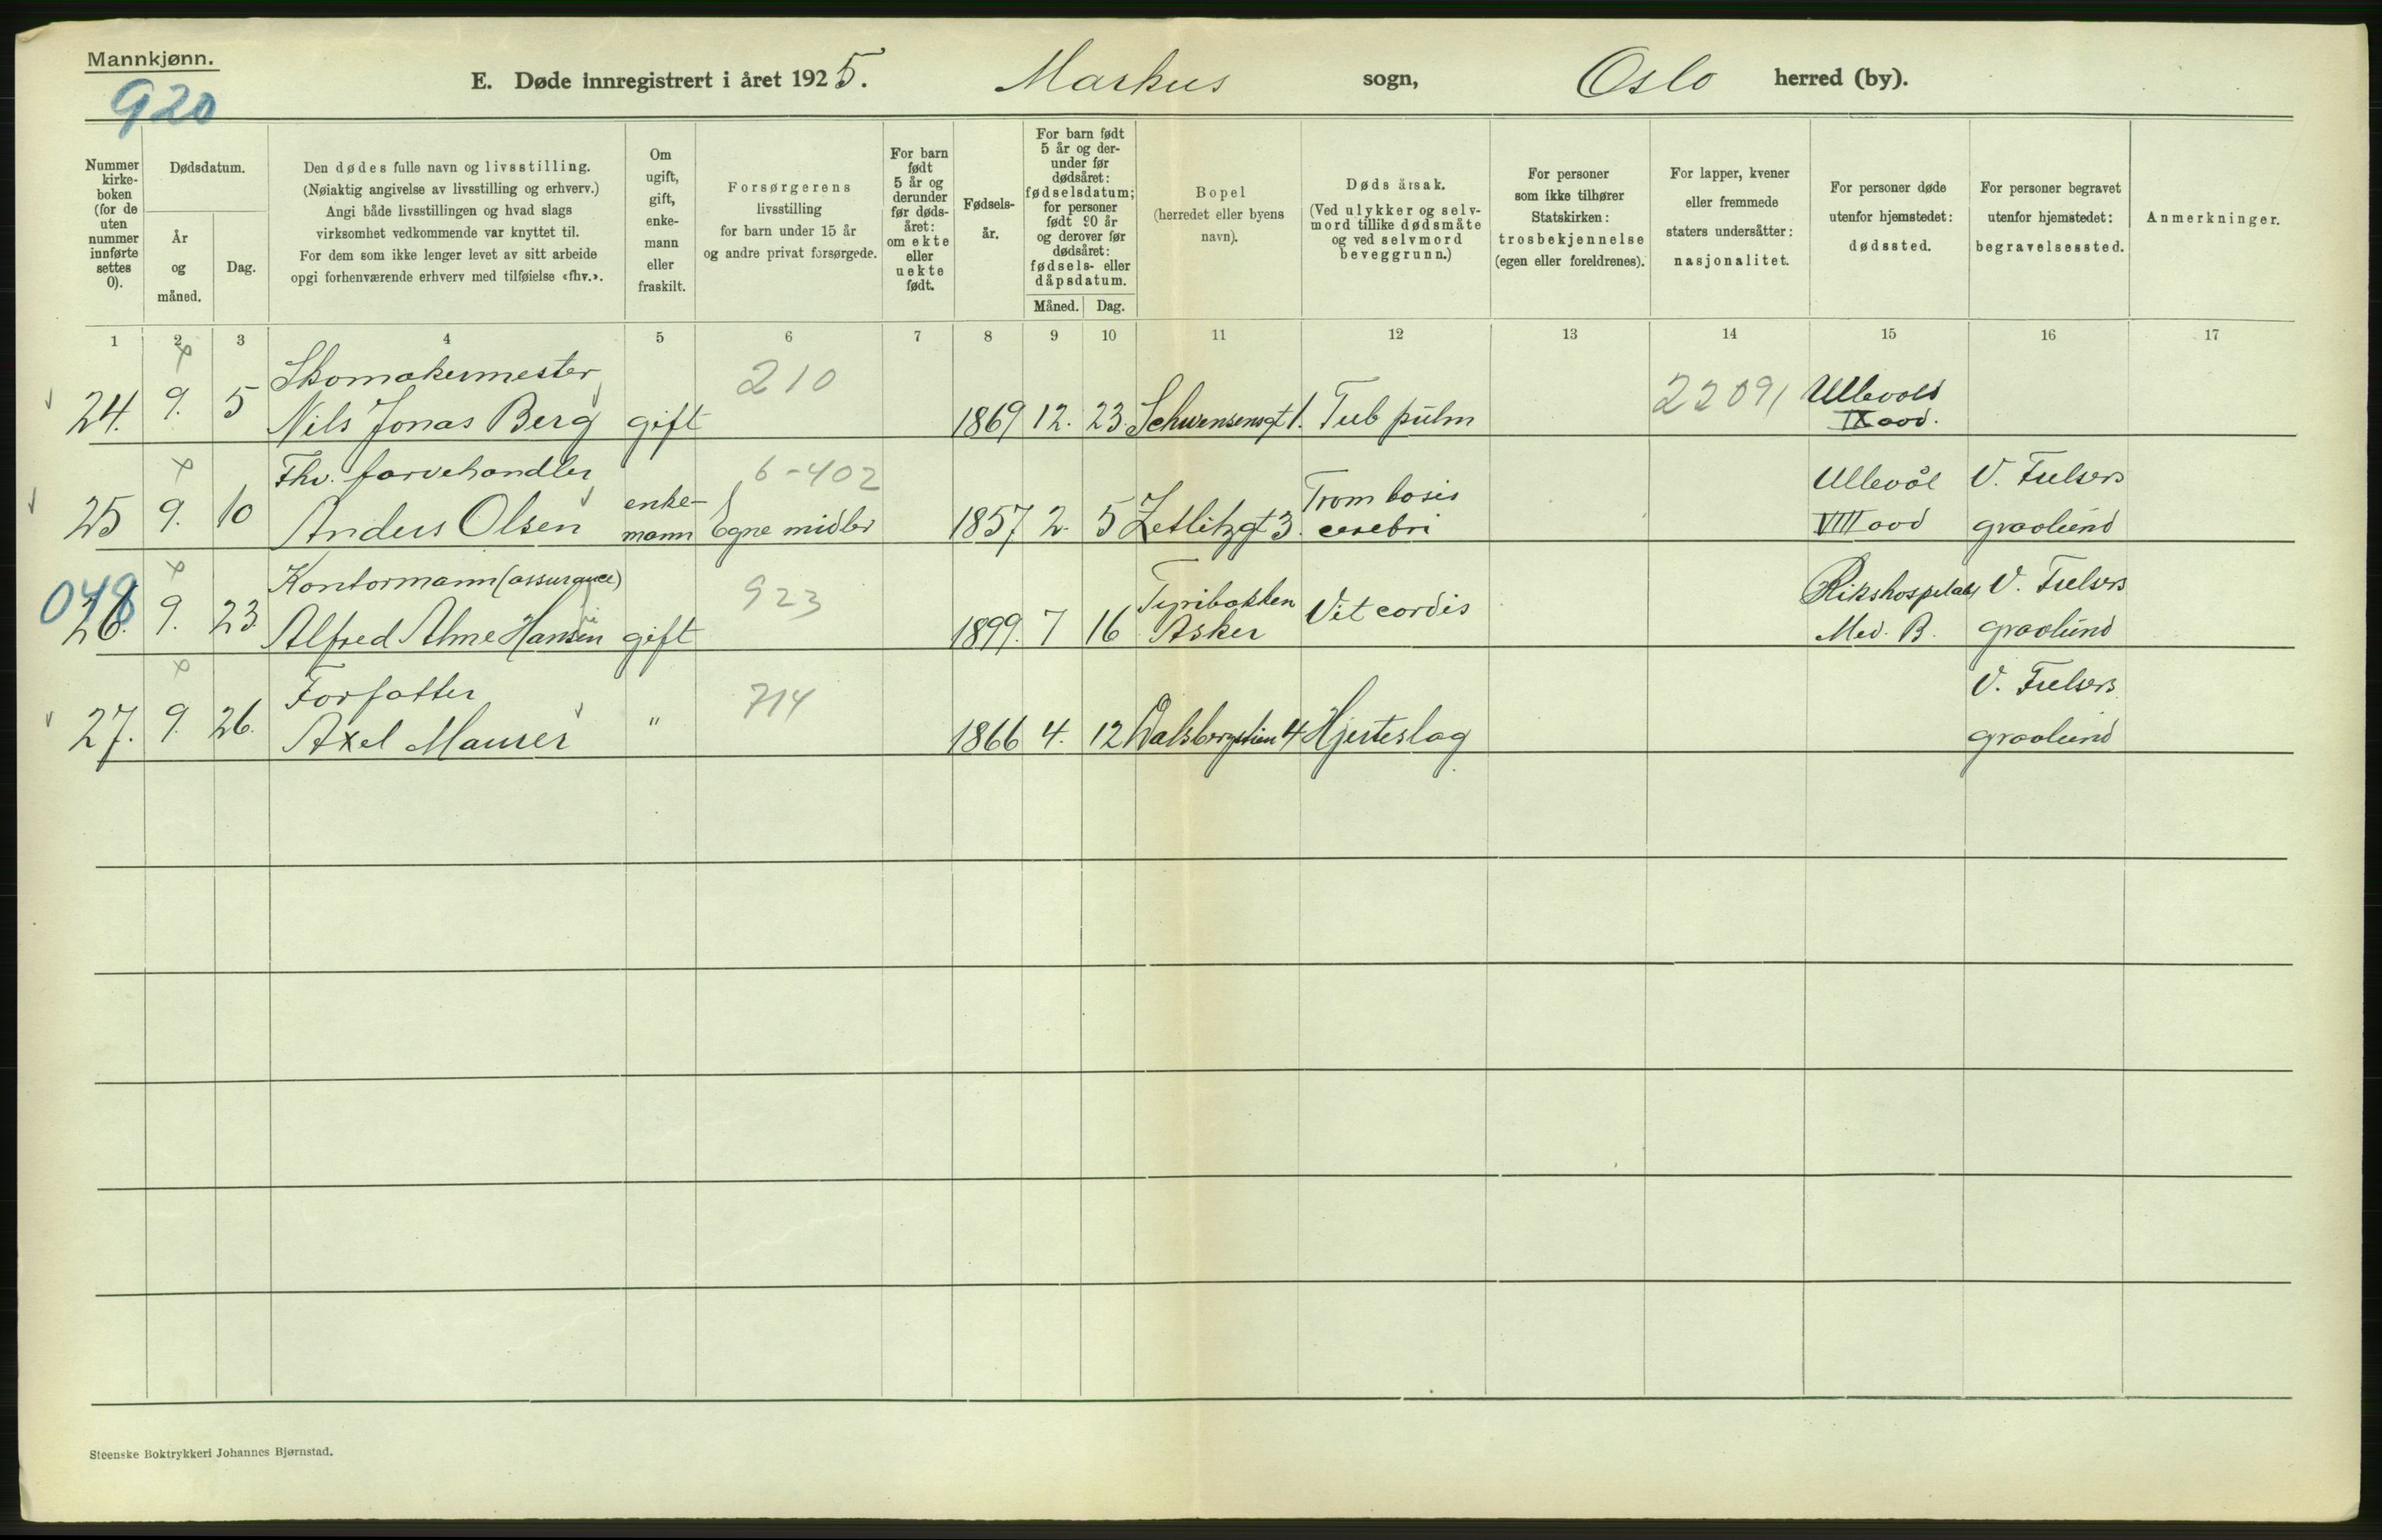 Mannkjønn.
920
E. Døde innregistrert i året 1925. Markus sogn, Oslo herred (by).
Nummer
kirke-
boken
(for de
uten
nummer
innførte
settes
0).
Dødsdatum.
År
og
måned.
Dag.
Den dødes fulle navn og livsstilling.
(Nøiaktig angivelse av livsstilling og erhverv.)
Angi både livsstillingen og hvad slags
virksomhet vedkommende var knyttet til.
For dem som ikke lenger levet av sitt arbeide
opgi forhenværende erhverv med tilføielse «fhv.».
Om
ugift,
gift,
enke-
mann
eller
fraskilt.
Forsørgerens
livsstilling
for barn under 15 år
og andre privat forsørgede.
For barn
født
5 år og
derunder
før døds-
året:
om ekte
eller
uekte
født.
Fødsels-
år.
For barn født
5 år og der-
under før
dødsåret:
fødselsdatum;
for personer
født 90 år
og derover før
dødsåret:
fødsels- eller
dåpsdatum.
Måned. Dag.
Bopel
(herredet eller byens
navn).
Døds årsak.
(Ved ulykker og selv-
mord tillike dødsmåte
og ved selvmord
beveggrunn.)
For personer
som ikke tilhører
Statskirken:
trosbekjennelse
(egen eller foreldrenes).
For lapper, kvener
eller fremmede
staters undersåtter:
nasjonalitet.
For personer døde
utenfor hjemstedet:
dødssted.
For personer begravet
utenfor hjemstedet:
begravelsessted.
Anmerkninger.
1 2 3 4 5 6 7 8 9 10 11 12 13 14 15 16 17
Skomakermester 210 22091 Ullevols
24. 9. 5 Nils Jonas Berg gift 1869 12. 23. Schwensensgt 1. Tub pulm IX avd.
Fhv. farvehandler 6-402 Trombosis Ullevål V. Frelsers
25 9. 10 Anders Olsen enke-
mann Egne midler 1857 2. 5 Zetlitzgt 3. cerebri VIII avd gravlund
048 Kontormann (assurance) 923 Tyribakken Rikshospitalet V. Frelsers
26. 9. 23 Alfred Alme Hansen gift 1899. 7 16 Asker Vit cordis Med. B. gravlund
Forfatter 714 V. Frelsers
27. 9. 26. Axel Maurer " 1866 4. 12 Dalsbergstien 4 Hjerteslag gravlund
Steenske Boktrykkeri Johannes Bjørnstad.